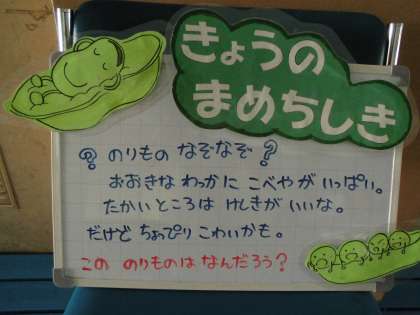 きょうの
まめちしき
? のりもの なぞなぞ ?
おおきな わっかに こべやが いっぱい。
たかい ところは けしきが いいな。
だけど ちょっぴり こわいかも。
この のりものは なんだろう?